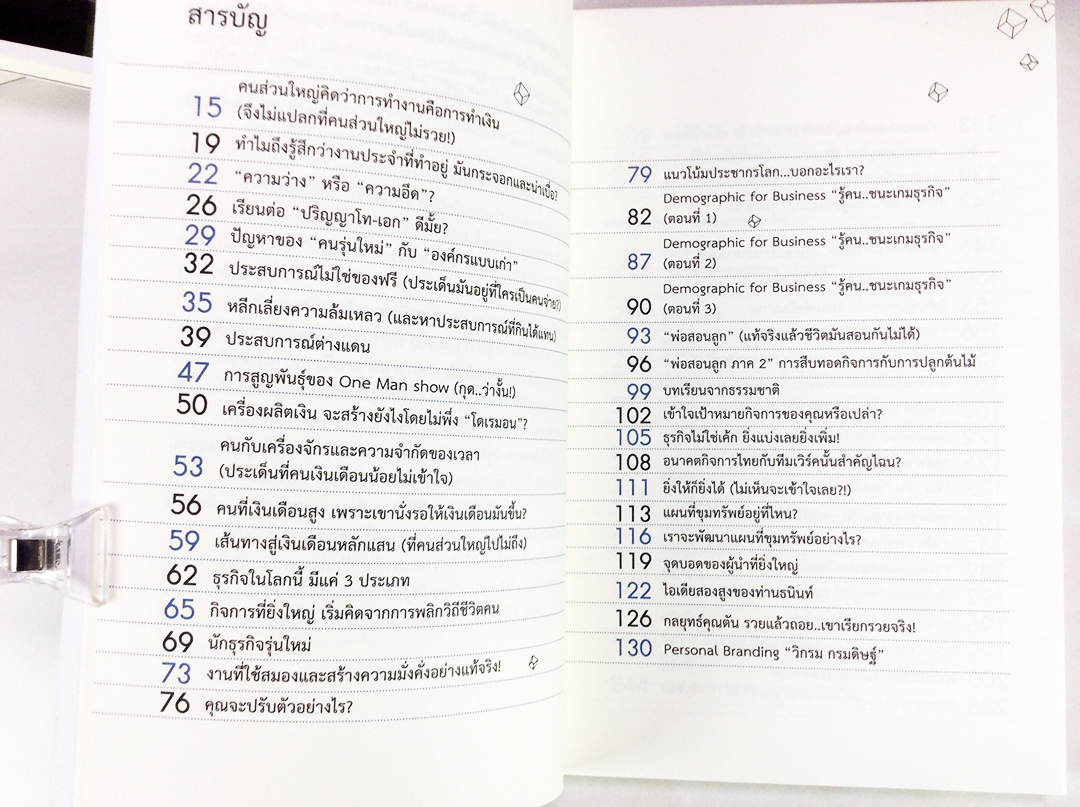 สารบัญ
คนส่วนใหญ่คิดว่าการทำงานคือการทำเงิน
15 (จึงไม่แปลกที่คนส่วนใหญ่ไม่รวย!)
19 ทำไมถึงรู้สึกว่างานประจำที่ทำอยู่ มันกระจอกและน่าเบื่อ?
22 “ความว่าง” หรือ “ความอืด”?
26 เรียนต่อ “ปริญญาโท-เอก” ดีมั้ย?
29 ปัญหาของ “คนรุ่นใหม่” กับ “องค์กรแบบเก่า”
32 ประสบการณ์ไม่ใช่ของฟรี (ประเด็นมันอยู่ที่ใครเป็นคนจ่าย?)
35 หลีกเลี่ยงความล้มเหลว (และหาประสบการณ์ที่กินได้แทน)
39 ประสบการณ์ต่างแดน
47 การสูญพันธุ์ของ One Man show (กุด..ว่างั้น!)
50 เครื่องผลิตเงิน จะสร้างยังไงโดยไม่พึ่ง “โดเรมอน”?
คนกับเครื่องจักรและความจำกัดของเวลา
53 (ประเด็นที่คนเงินเดือนน้อยไม่เข้าใจ)
56 คนที่เงินเดือนสูง เพราะเขานั่งรอให้เงินเดือนมันขึ้น?
59 เส้นทางสู่เงินเดือนหลักแสน (ที่คนส่วนใหญ่ไปไม่ถึง)
62 ธุรกิจในโลกนี้ มีแค่ 3 ประเภท
65 กิจการที่ยิ่งใหญ่ เริ่มคิดจากการพลิกวิถีชีวิตคน
69 นักธุรกิจรุ่นใหม่
73 งานที่ใช้สมองและสร้างความมั่งคั่งอย่างแท้จริง!
76 คุณจะปรับตัวอย่างไร?
79 แนวโน้มประชากรโลก...บอกอะไรเรา?
Demographic for Business “รู้คน..ชนะเกมธุรกิจ”
82 (ตอนที่ 1)
Demographic for Business “รู้คน..ชนะเกมธุรกิจ”
87 (ตอนที่ 2)
Demographic for Business “รู้คน..ชนะเกมธุรกิจ”
90 (ตอนที่ 3)
93 “พ่อสอนลูก” (แท้จริงแล้วชีวิตมันสอนกันไม่ได้)
96 “พ่อสอนลูก ภาค 2” การสืบทอดกิจการกับการปลูกต้นไม้
99 บทเรียนจากธรรมชาติ
102 เข้าใจเป้าหมายกิจการของคุณหรือเปล่า?
105 ธุรกิจไม่ใช่เค้ก ยิ่งแบ่งเลยยิ่งเพิ่ม!
108 อนาคตกิจการไทยกับทีมเวิร์คนั้นสำคัญไฉน?
111 ยิ่งให้ก็ยิ่งได้ (ไม่เห็นจะเข้าใจเลย?!)
113 แผนที่ขุมทรัพย์อยู่ที่ไหน?
116 เราจะพัฒนาแผนที่ขุมทรัพย์อย่างไร?
119 จุดบอดของผู้นำที่ยิ่งใหญ่
122 ไอเดียสองสูงของท่านธนินท์
126 กลยุทธ์คุณตัน รวยแล้วถอย..เขาเรียกรวยจริง!
130 Personal Branding “วิกรม กรมดิษฐ์”